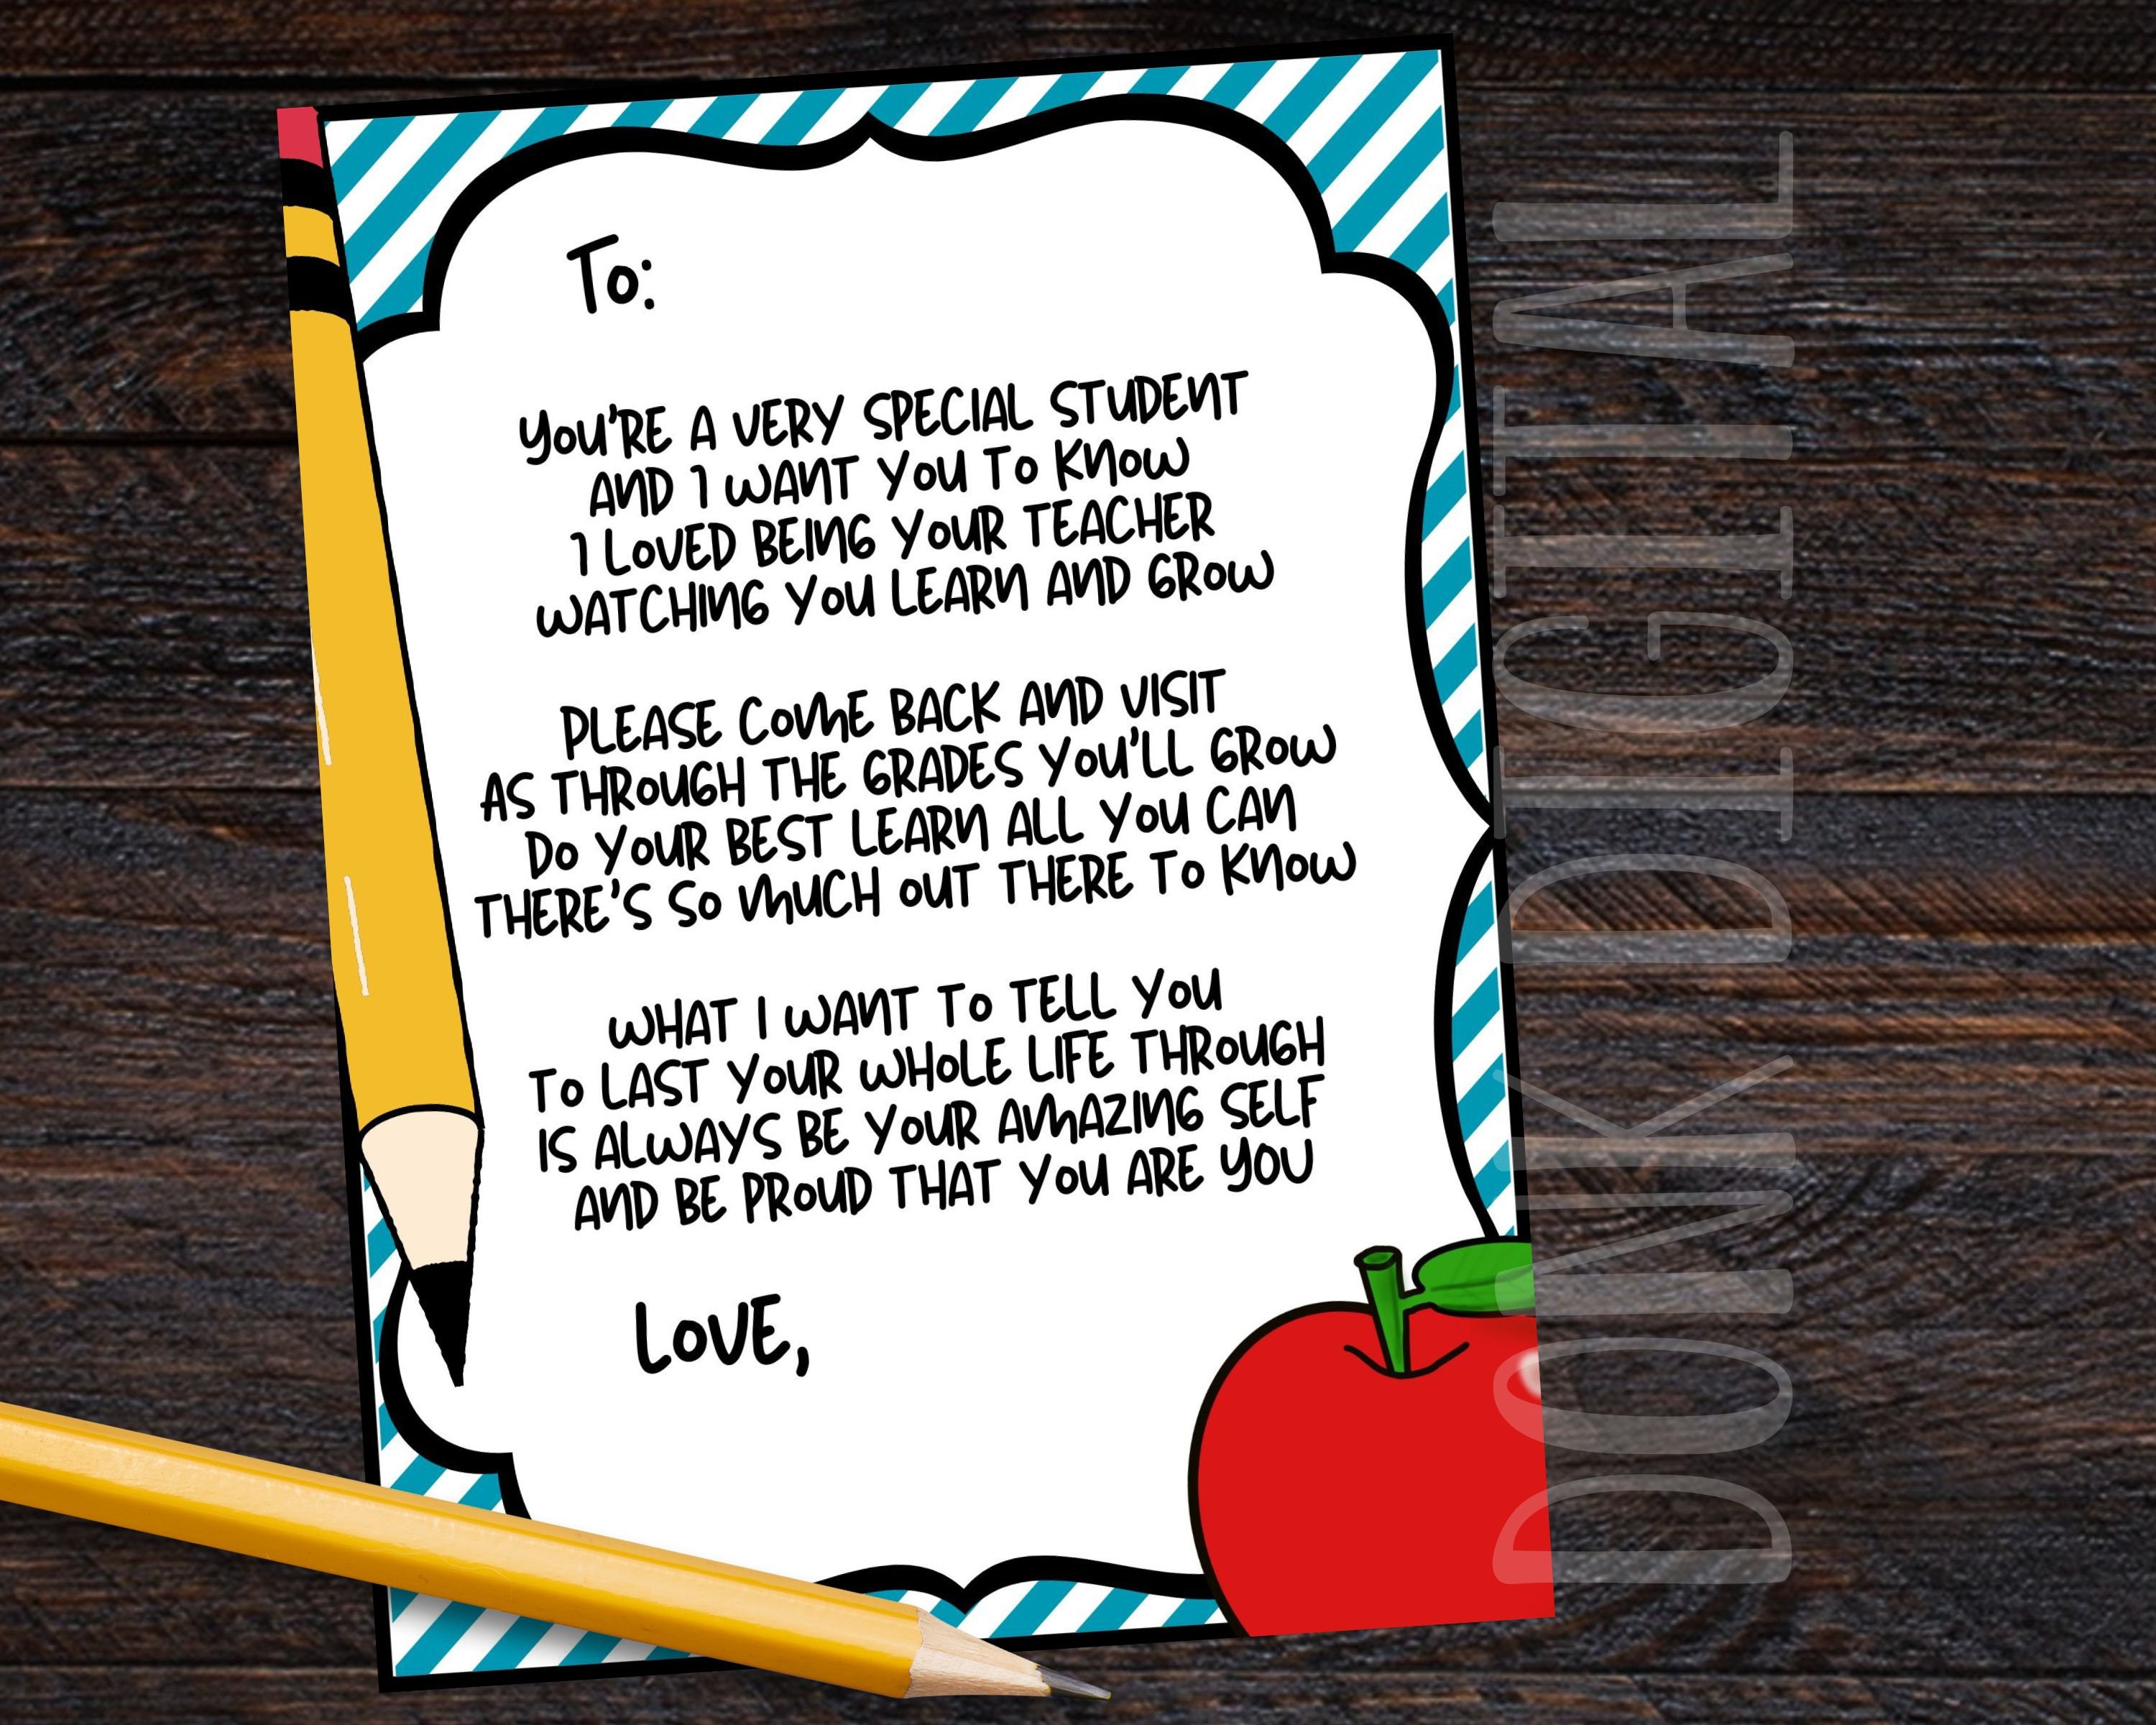 To:
YOU'RE A VERY SPECIAL STUDENT
AND I WANT YOU TO KNOW
I LOVED BEING YOUR TEACHER
WATCHING YOU LEARN AND GROW
PLEASE COME BACK AND VISIT
AS THROUGH THE GRADES YOU'LL GROW
DO YOUR BEST LEARN ALL YOU CAN
THERE'S SO MUCH OUT THERE TO KNOW
WHAT I WANT TO TELL YOU
TO LAST YOUR WHOLE LIFE THROUGH
IS ALWAYS BE YOUR AMAZING SELF
AND BE PROUD THAT YOU ARE YOU
LOVE,
DONK DIGITAL